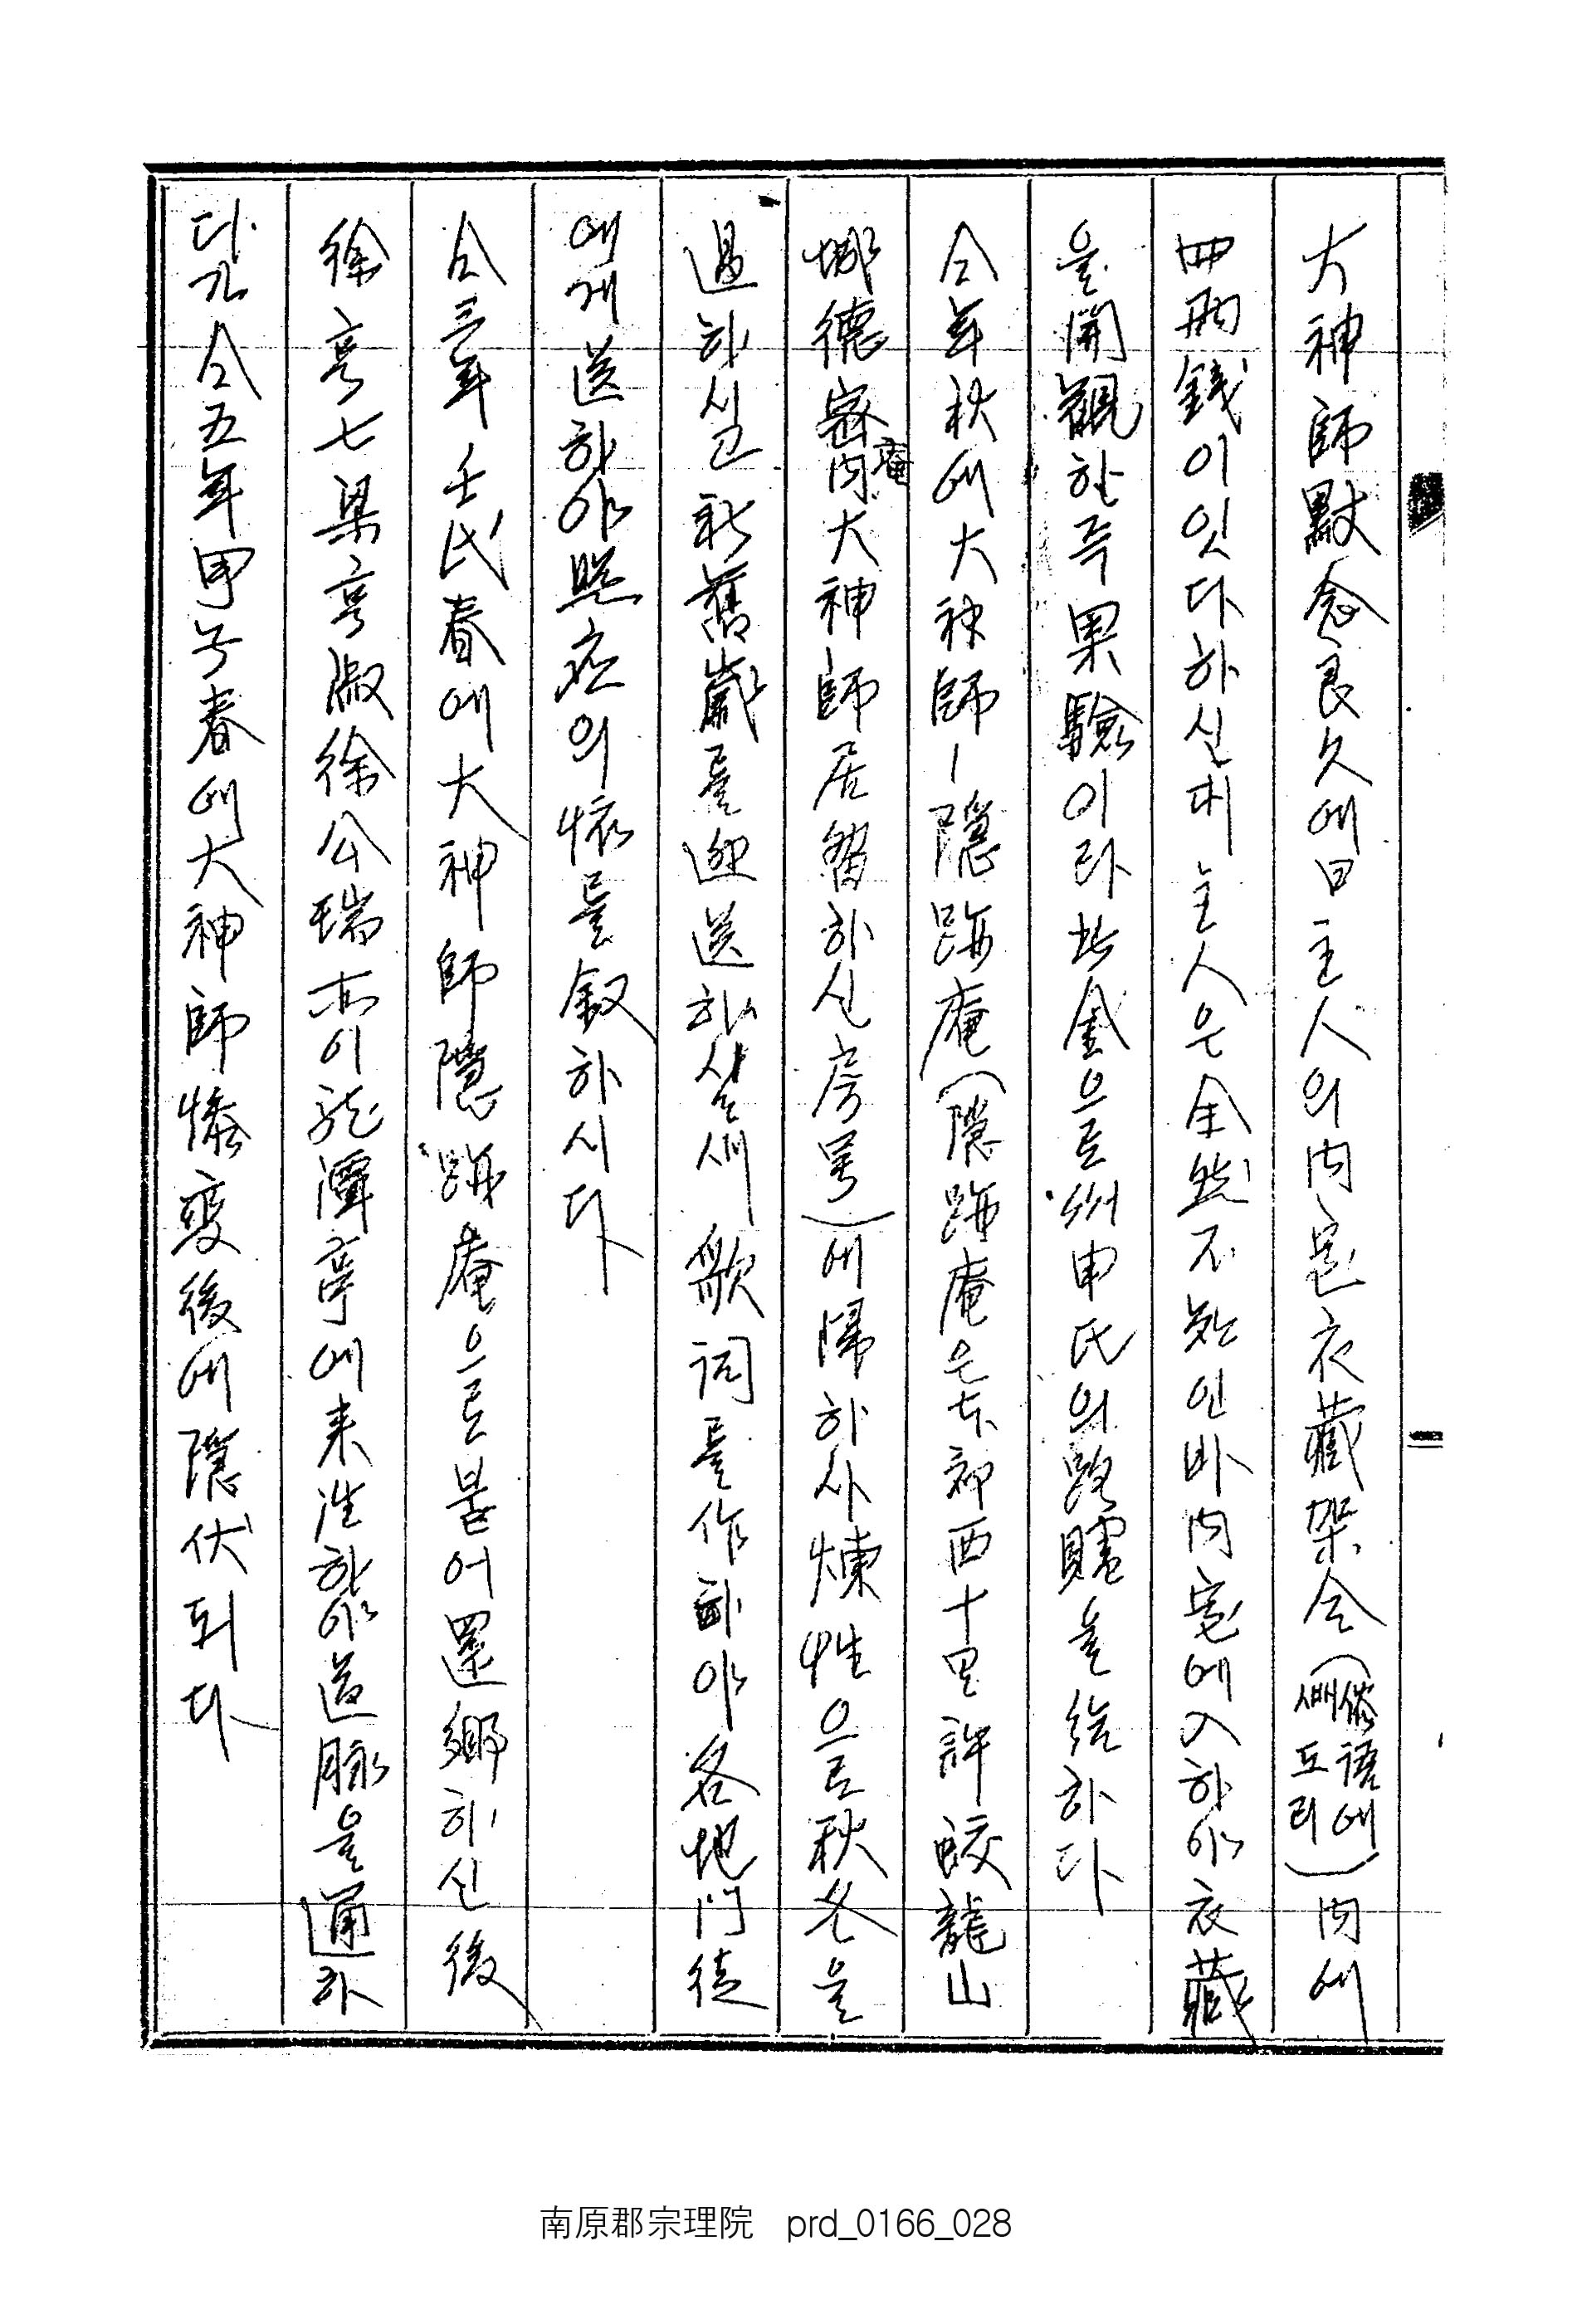 大神師默念良久에曰主人의內室衣藏架仝(俗語에 새빼도리)內에
四兩錢이잇다하신대主人은全然不知인바內室에入하야衣藏
을開觀한즉果驗이라此金으로 州申氏의路贐을給하다
仝年秋에大神師ㅣ隱跡庵(隱跡庵은本郡西十里許蛟龍山
城德密庵內大神師居留하신房号)에歸하사煉性으로秋冬을
過하실고新舊歲를迎送하실새歌詞를作하야各地門徒
에게送하야照應의懷를叙하시다
仝三年壬戌春에大神師隱跡庵으로붙어還鄕하신後
徐亨七梁亨淑徐公瑞亦이龍潭亭에來往하야道脉을通하
다가仝五年甲子春에大神師慘變後에隱伏되다
南原郡宗理院 prd_0166_028